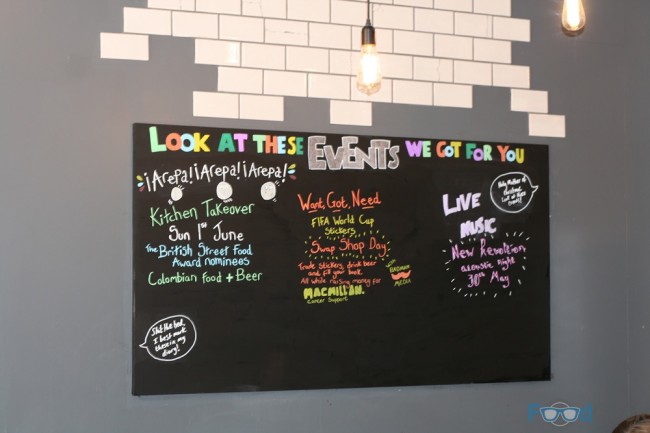 LOOK AT THESE EVENTS WE GOT FOR YOU
¡Arepa! ¡Arepa! ¡Arepa!
Kitchen Takeover
Sun 1st June
The British Street Food
Award nominees
Colombian Food + Beer
Shit the bed,
I best mark
these in my
diary!
Want, Got, Need
FIFA World Cap
Stickers
Swap Shop Day
Trade stickers, drink beer
and fill your book
All while raising money for
MACMILLAN.
Cancer Support
with
BADMAN
MEISH
Holy Mother of
LIVE
MUSIC
New Revellers
acoustic night
30th May
Food